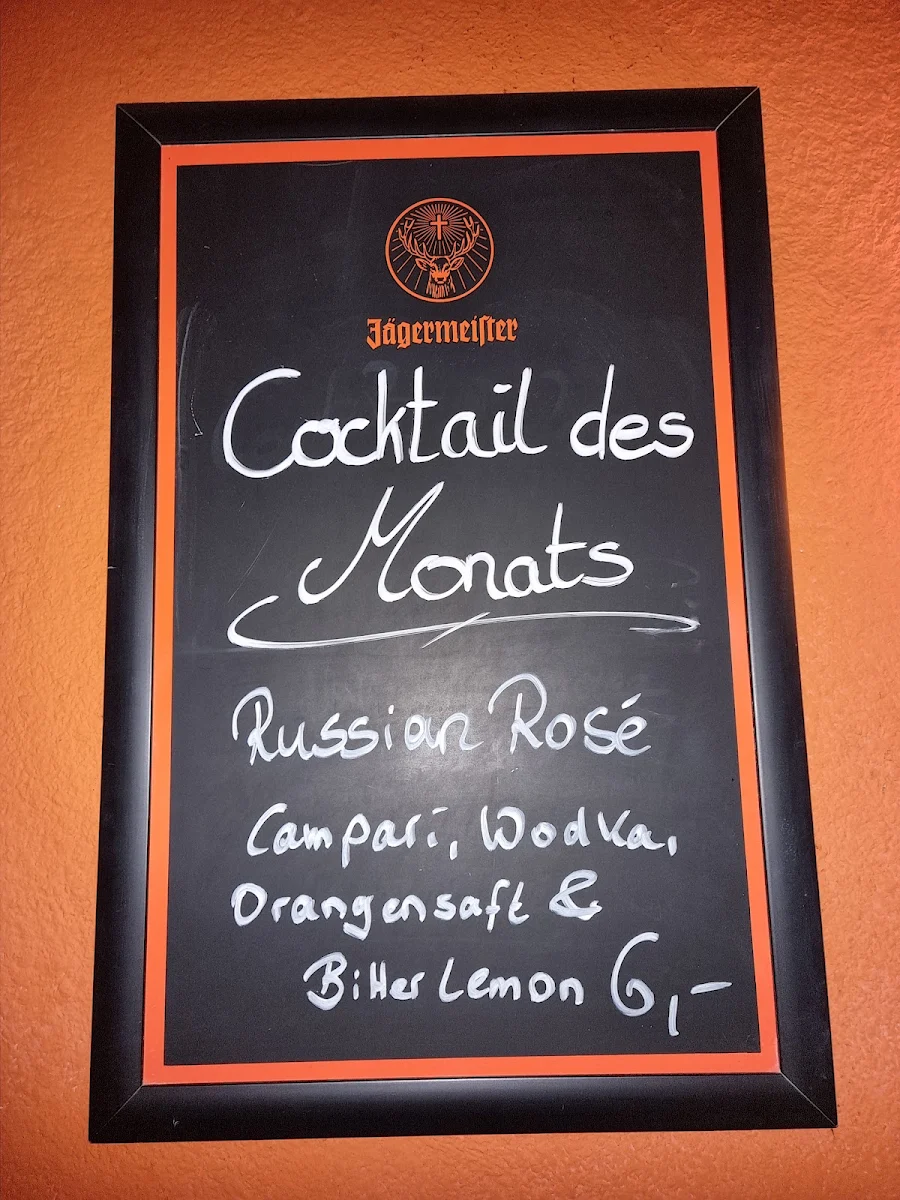 Jägermeiſter
Cocktail des
Monats
Russian Rosé
Campari, Wodka,
Orangensaft &
Bitter Lemon 6,-